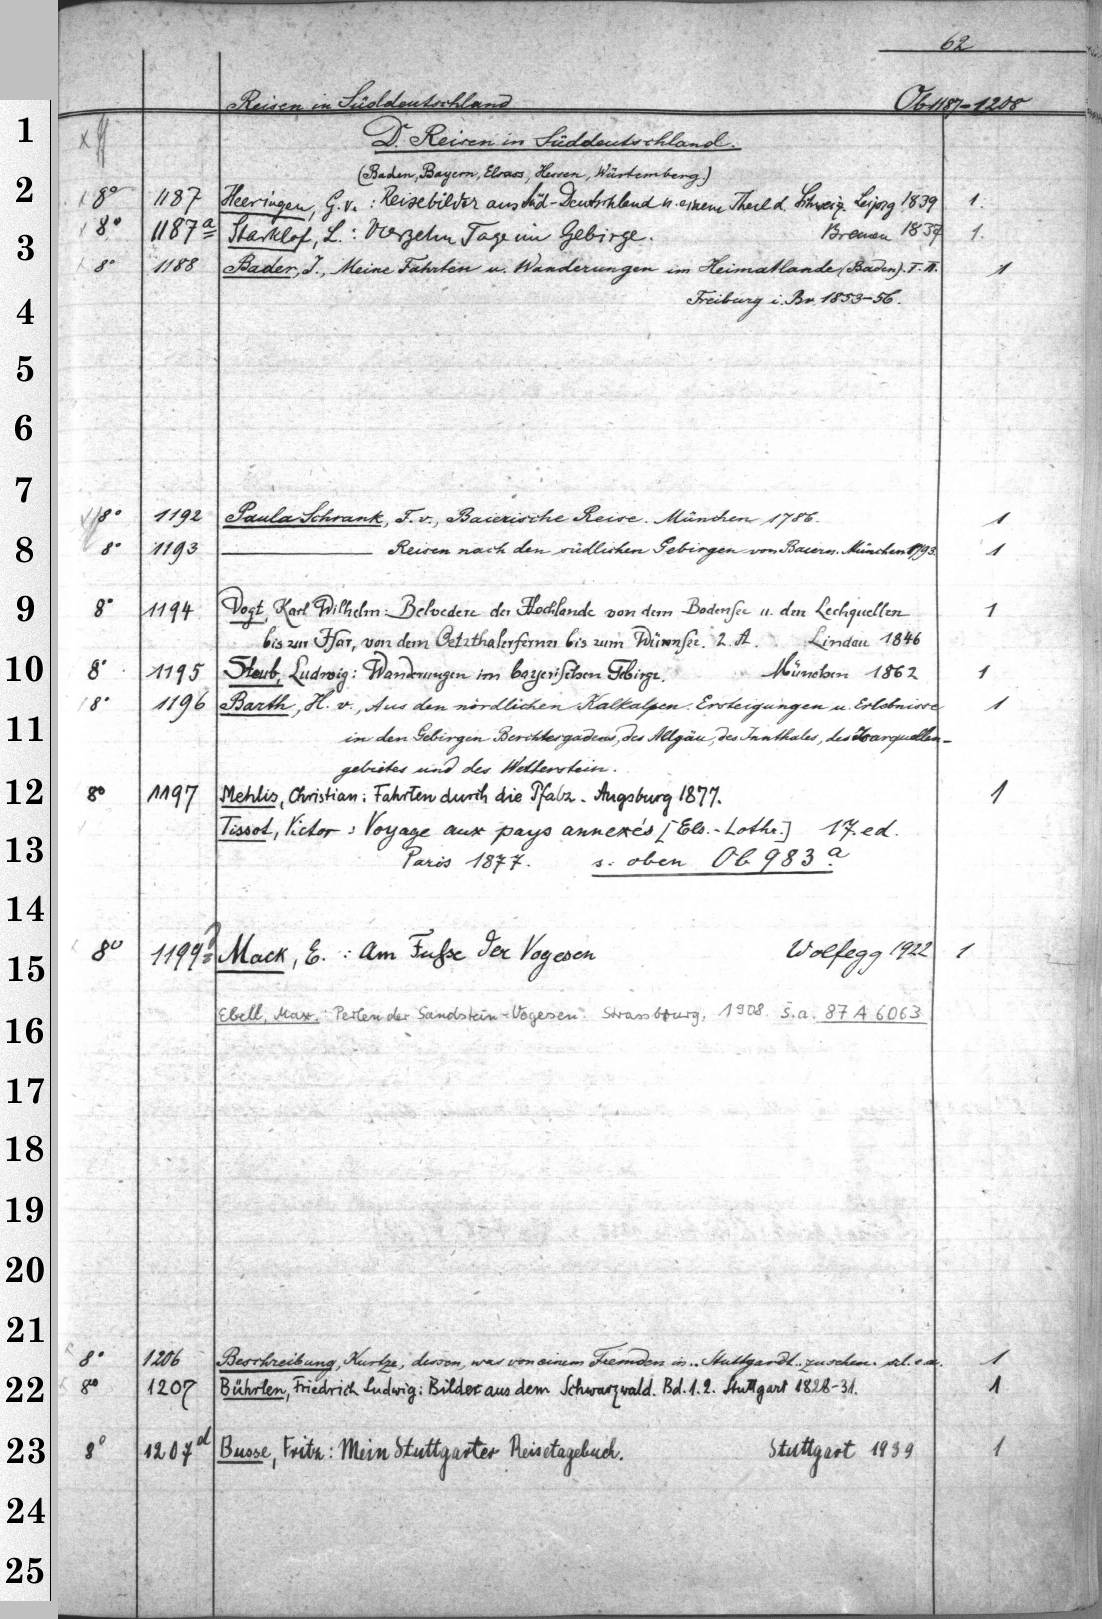 62
Reisen in Süddeutschland Ob 1187-1208
D. Reisen in Süddeutschland.
(Baden, Bayern, Elsass, Hessen, Würtemberg.)
8° 1187 Heeringen, G. v. : Reisebilder aus Süd-Deutschland u. einem Theil d. Schweiz. Leipzg 1839 1.
8° 1187a Starklof, L. : Vierzehn Tage im Gebirge. Bremen 1837 1.
8° 1188 Bader, J., Meine Fahrten u. Wanderungen im Heimatlande (Baden). I. II. 1
Freiburg i. Br. 1853-56.
8° 1192 Paula Schrank, F. v., Baierische Reise. München 1786. 1
8° 1193 ——— Reisen nach den südlichen Gebirgen von Baiern. München 1793. 1
8° 1194 Vogt, Karl Wilhelm: Belvedere der Hochlande von dem Bodensee u. den Lechquellen 1
bis zur Isar, von dem Oetzthalerferner bis zum Würmsee. 2. A. Lindau 1846
8° 1195 Steub, Ludwig: Wanderungen im bayerischen Gebirge. München 1862 1
8° 1196 Barth, H. v., Aus den nördlichen Kalkalpen. Ersteigungen u. Erlebnisse 1
in den Gebirgen Berchtesgadens, des Allgäu, des Innthales, des Isarquellen-
gebietes und des Wetterstein.
8° 1197 Mehlis, Christian: Fahrten durch die Pfalz. Augsburg 1877. 1
Tissot, Victor : Voyage aux pays annexés [Els.-Lothr.] 17. ed.
Paris 1877. s. oben Ob 983a
8° 1199 Mack, E. : Am Fuße der Vogesen Wolfegg 1922 1
Ebell, Max.: Perlen der Sandstein-Vogesen. Strassburg, 1908. s.a. 87 A 6063
8° 1206 Beschreibung, Kurtze, dessen, was von einem Fremden in.. Stuttgardt.. zu sehen. s.l. e a. 1
8° 1207 Bührlen, Friedrich Ludwig: Bilder aus dem Schwarzwald. Bd. 1.2. Stuttgart 1828-31. 1
8° 1207d Busse, Fritz: Mein Stuttgarter Reisetagebuch. Stuttgart 1939 1
1
2
3
4
5
6
7
8
9
10
11
12
13
14
15
16
17
18
19
20
21
22
23
24
25